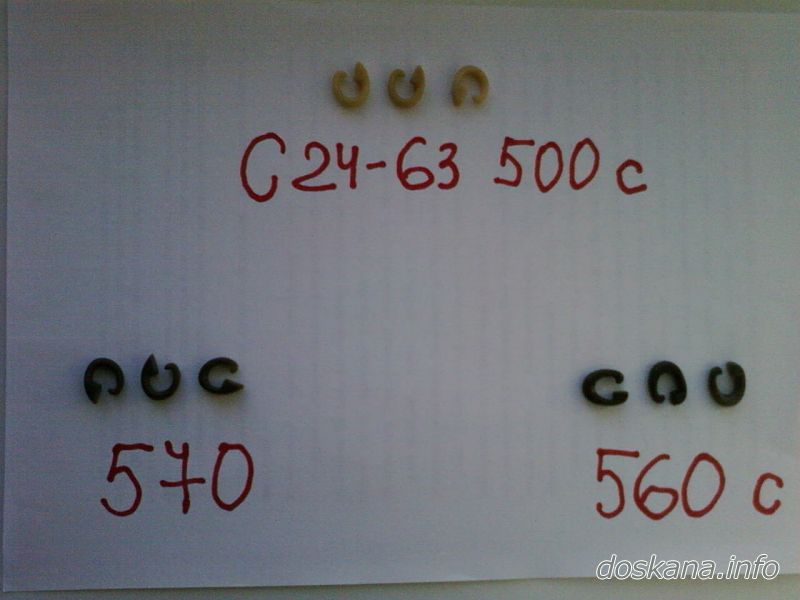 С24-63 500 с
570
560 с
doskana.info